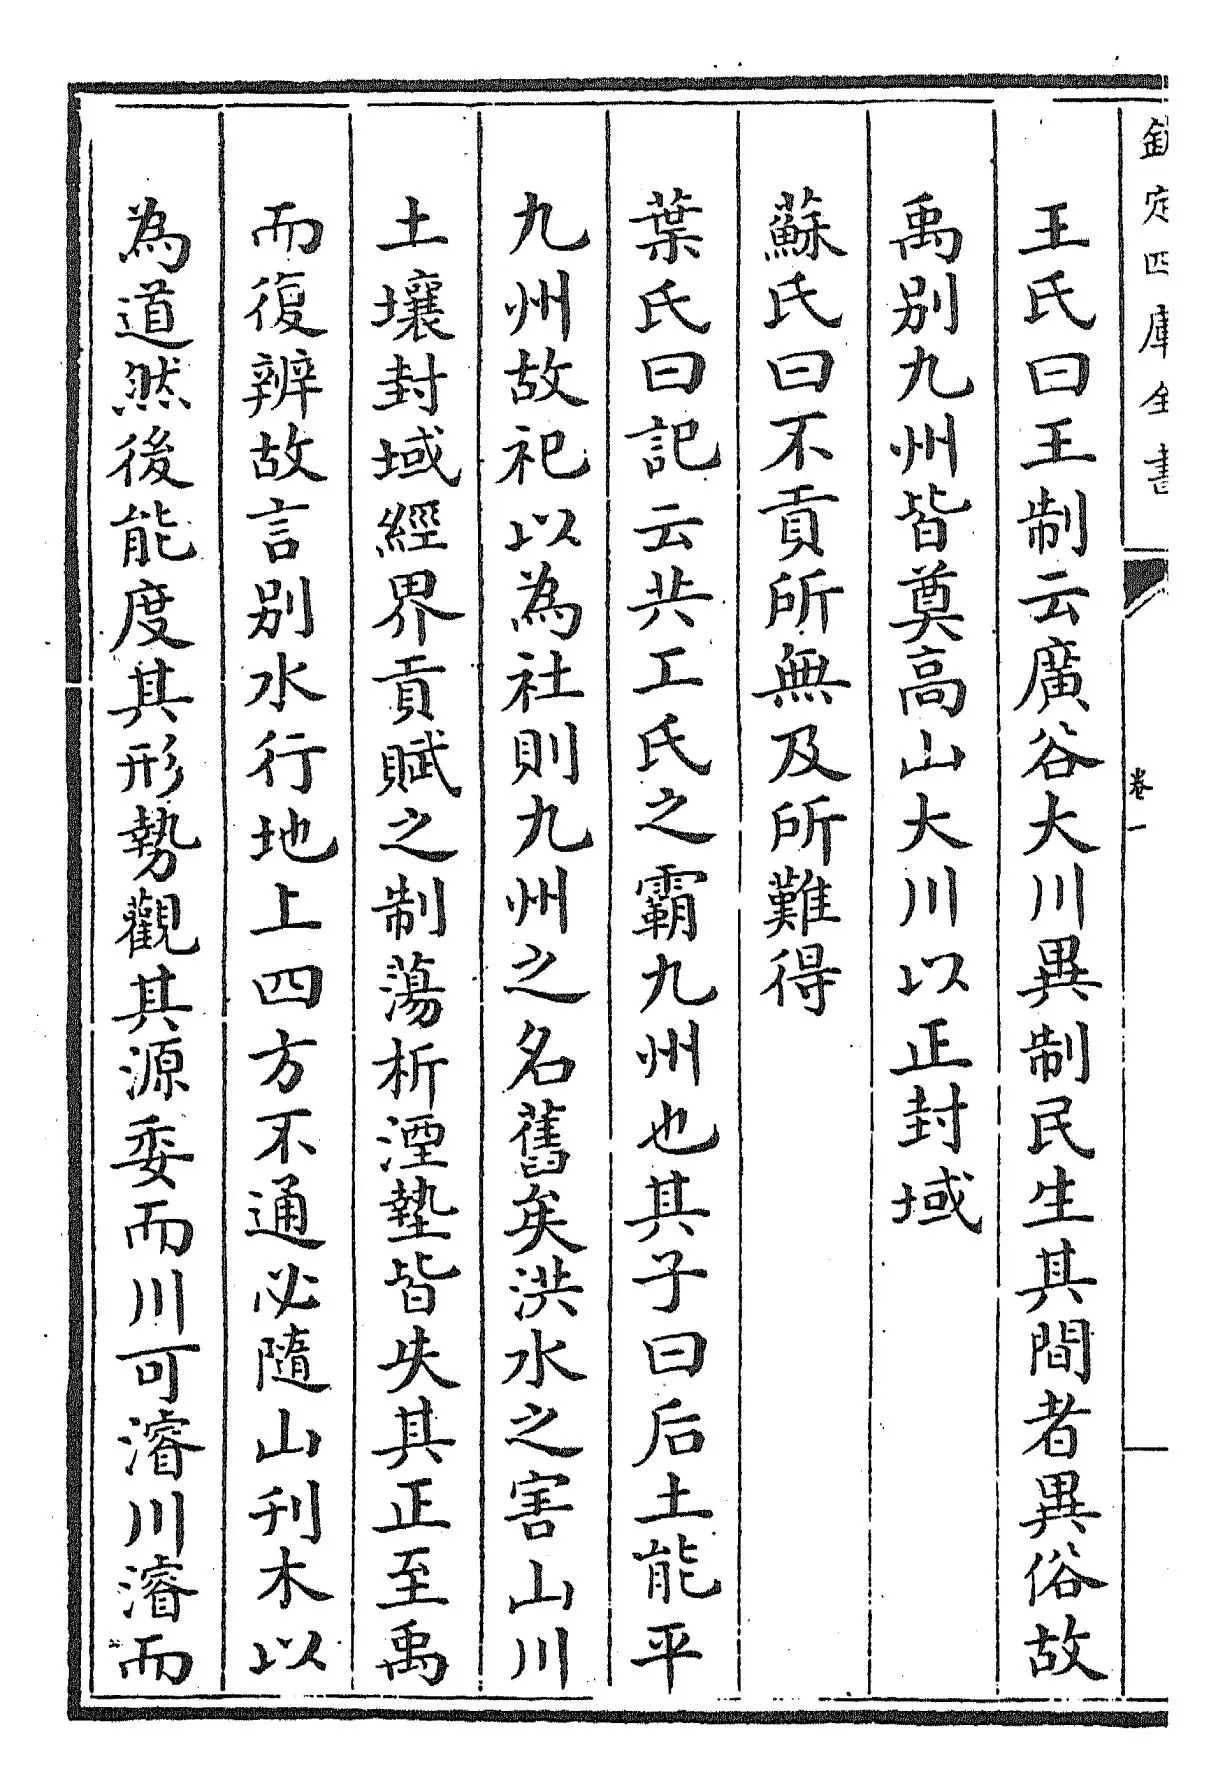 欽定四庫全書
卷一
王氏曰王制云廣谷大川異制民生其間者異俗故
禹别九州皆奠高山大川以正封域
蘇氏曰不貢所無及所難得
葉氏曰記云共工氏之霸九州也其子曰后土能平
九州故祀以為社則九州之名舊矣洪水之害山川
土壤封域經界貢賦之制蕩析湮墊皆失其正至禹
而復辨故言别水行地上四方不通必隨山刋木以
為道然後能度其形勢觀其源委而川可濬川濬而